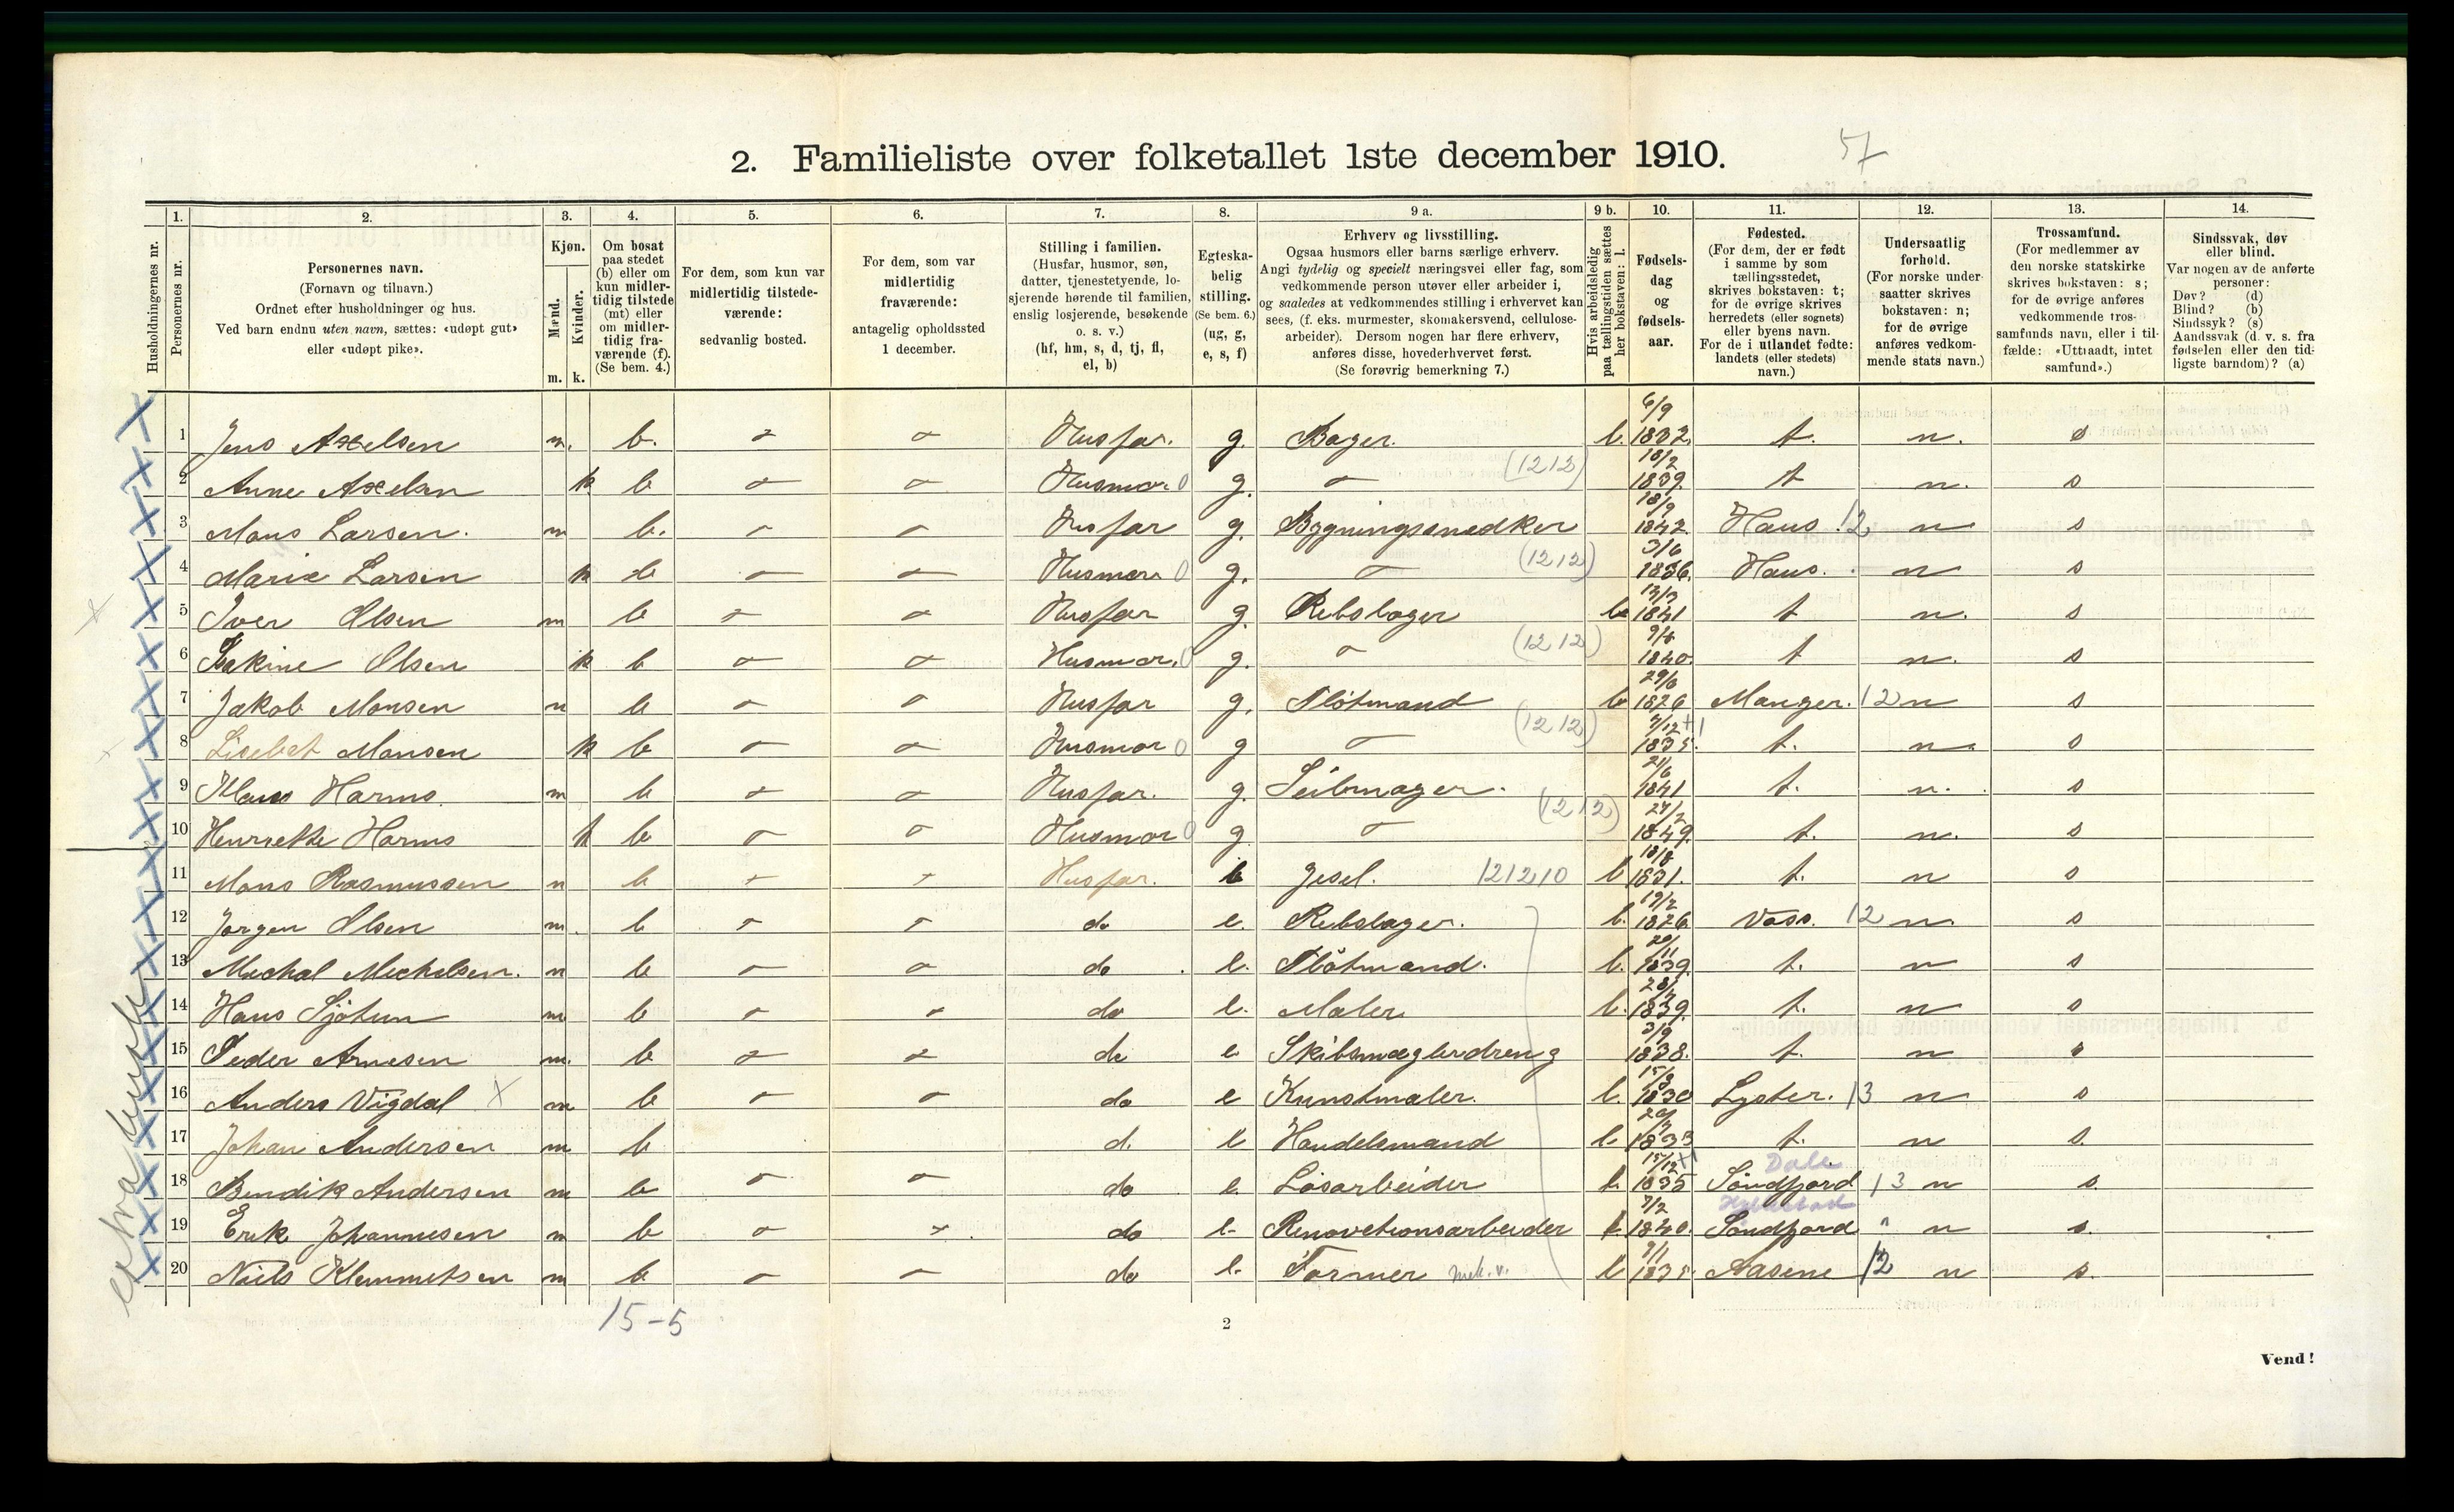 2. Familieliste over folketallet 1ste december 1910.
57
Husholdningernes nr.
1. Personernes nr.
2. Personernes navn. (Fornavn og tilnavn.) Ordnet efter husholdninger og hus. Ved barn endnu uten navn, sættes: «udøpt gut» eller «udøpt pike».
3. Kjøn. Mænd. m. Kvinder. k.
4. Om bosat paa stedet (b) eller om kun midlertidig tilstede (mt) eller om midlertidig fraværende (f). (Se bem. 4.)
5. For dem, som kun var midlertidig tilstedeværende: sedvanlig bosted.
6. For dem, som var midlertidig fraværende: antagelig opholdssted 1 december.
7. Stilling i familien. (Husfar, husmor, søn, datter, tjenestetyende, losjerende hørende til familien, enslig losjerende, besøkende o. s. v.) (hf, hm, s, d, tj, fl, el, b)
8. Egteskabelig stilling. (Se bem. 6.) (ug, g, e, s, f)
9 a. Erhverv og livsstilling. Ogsaa husmors eller barns særlige erhverv. Angi tydelig og specielt næringsvei eller fag, som vedkommende person utøver eller arbeider i, og saaledes at vedkommendes stilling i erhvervet kan sees, (f. eks. murmester, skomakersvend, cellulosearbeider). Dersom nogen har flere erhverv, anføres disse, hovederhvervet først. (Se forøvrig bemerkning 7.)
9 b. Hvis arbeidsledig paa tællingstiden sættes her bokstaven: l.
10. Fødselsdag og fødselsaar.
11. Fødested. (For dem, der er født i samme by som tællingsstedet, skrives bokstaven: t; for de øvrige skrives herredets (eller sognets) eller byens navn. For de i utlandet fødte: landets (eller stedets) navn.)
12. Undersaatlig forhold. (For norske undersaatter skrives bokstaven: n; for de øvrige anføres vedkommende stats navn.)
13. Trossamfund. (For medlemmer av den norske statskirke skrives bokstaven: s; for de øvrige anføres vedkommende trossamfunds navn, eller i tilfælde: «Uttraadt, intet samfund».)
14. Sindssvak, døv eller blind. Var nogen av de anførte personer: Døv? (d) Blind? (b) Sindssyk? (s) Aandssvak (d. v. s. fra fødselen eller den tidligste barndom)? (a)
1 Jens Axelsen m. b. Husfar. g. Bager. l. 6/9 1832. t. n. s
2 Anne Axelsen k b Husmor 0 g. (1212) 18/2 1839. t n. s
3 Mons Larsen. m b. Husfar g. Bygningssnedker 18/9 1842. Haus. 12 n s
4 Marie Larsen k b Husmor 0 g. (1212) 3/6 1836. Haus. n s
5 Iver Olsen m b Husfar g. Rebslager l 1841 t n. s
6 Olsen k b Husmor. 0 g. (1212) 1840. t n. s
7 Jakob Monsen m b Husfar g. Flötmand l 29/6 1826 Manger. 12 n s
8 Lisebet Monsen k b Husmor 0 g (1212) 7/12 +1 1835. t. n s
9 Klaus Harms. m b Husfar. g. Seilmager. 21/6 1841 t. n. s
10 Henriette Harms k b Husmor 0 g (1212) 24/2 1849. t. n. s
11 Mons Rasmussen m b Husfar. e Jesel. 121210 l 18/8 1831. t. n s
12 Jørgen Olsen m. b do e. Rebslager. l. 19/2 1826. Voss. 12 n. s
13 Michal Michelsen. m b do e. Flötmand. l. 20/11 1839. t. n s
14 Hans Sjøtun m b do e. Maler l. 1839. t. n s
15 Peder Arnesen m. b do e Skibsmæglerdreng 3/9 1838. t. n s
16 Anders Vigdal X m b do e Kunstmaler. l. 15/3 1830 Lyster. 13 n s
17 Johan Andersen m b d. e Handelsmand l 1833 t. n s
18 Bendik Andersen m b do e. Løsarbeider l. 15/12 +1 1835 Dale Söndfjord 13 n s.
19 Erik Johannesen m b do e. Renovationsarbeider l. 7/2 1840. Hyllestad Söndfjord " n s.
20 Niels Klemmetsen m b do e. Former mek. v. l 9/1 1835 Aasene 12 n s.
15-5
2
Vend!